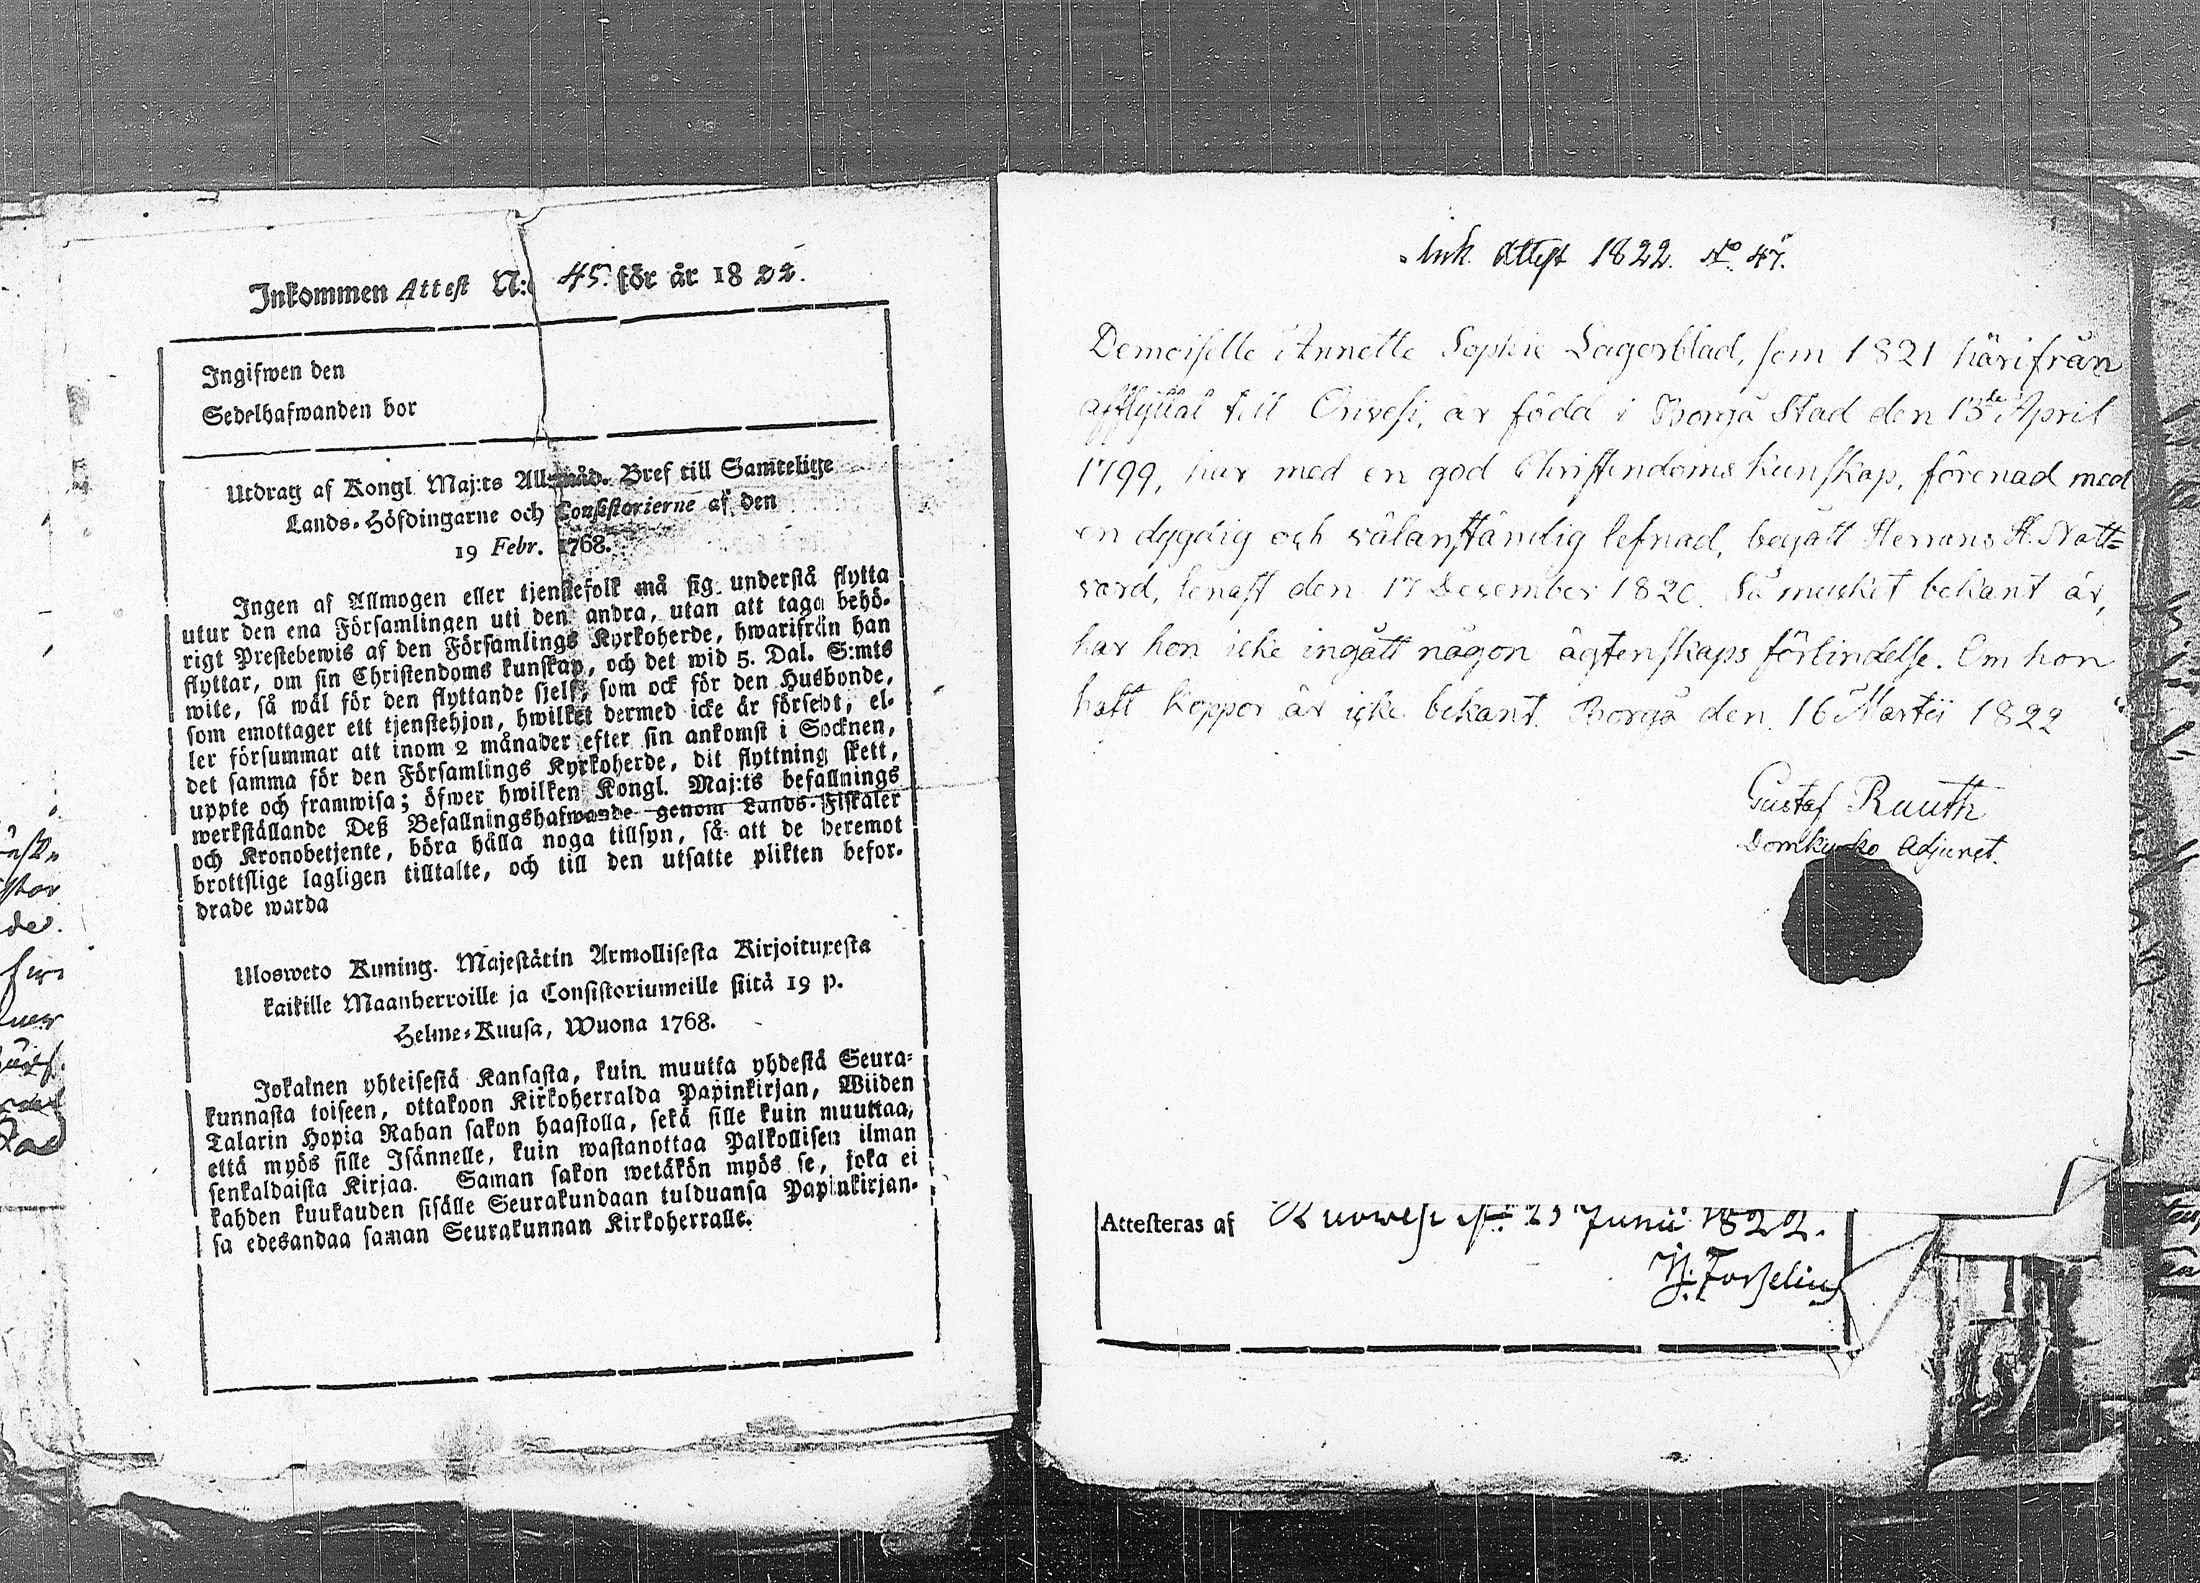 Inkommen Attest N:o 45. för år 1822.
Ingifwen den
Sedelhafwanden bor
Utdrag af Kongl. Maj:ts Allernåd. Bref till Samtelige
Lands-Höfdingarne och Consistorierne af den
19 Febr. 1768.
Ingen af Allmogen eller tjenstefolk må sig understå flytta
utur den ena Församlingen uti den andra, utan att taga behö-
rigt Prestebewis af den Församlings Kyrkoherde, hwarifrån han
flyttar, om sin Christendoms kunskap, och det wid 5. Dal. S:mts
wite, så wäl för den flyttande sjelf, som ock för den Husbonde,
som emottager ett tjenstehjon, hwilket dermed icke är försedt, el-
ler försummar att inom 2 månader efter sin ankomst i Socknen,
det samma för den Församlings Kyrkoherde, dit flyttning skett,
uppte och framwisa; öfwer hwilken Kongl. Maj:ts befallnings
werkställande Deß Befallningshafwande genom Lands-Fiskaler
och Kronobetjente, böra hålla noga tillsyn, så att de deremot
brottslige lagligen tilltalte, och till den utsatte plikten befor-
drade warda
Ulosweto Kuning. Majestätin Armollisesta Kirjoituxesta
kaikille Maanherroille ja Consistoriumeille siitä 19 p.
Helme-Kuusa, Wuona 1768.
Jokainen yhteisestä Kansasta, kuin muutta yhdestä Seura-
kunnasta toiseen, ottakoon Kirkoherralda Papinkirjan, Wiiden
Talarin Hopia Rahan sakon haastolla, sekä sille kuin muuttaa,
että myös sille Isännelle, kuin wastanottaa Palkollisen ilman
senkaldaista Kirjaa. Saman sakon wetäkön myös se, joka ei
kahden kuukauden sisälle Seurakundaan tulduansa Papinkirjan-
sa edesandaa saman Seurakunnan Kirkoherralle.
Ink. Attest 1822. No. 47.
Demoiselle Annette Sophie Lagerblad, som 1821 härifrån
afflyttat till Orivesi, är född i Borgå Stad den 13de April
1799, har med en god Christendoms kunskap, förenad med
en dygdig och välanständig lefnad, begått Herrans H. Natt-
vard, senast den 17 December 1820. Så mycket bekant är,
har hon icke ingått någon ägtenskaps förbindelse. Om hon
haft koppor är icke bekant. Borgå den 16 Martii 1822
Gustaf Ruuth
Domkyrko Adjunct.
Attesteras af Junii 1822.
Forßelius